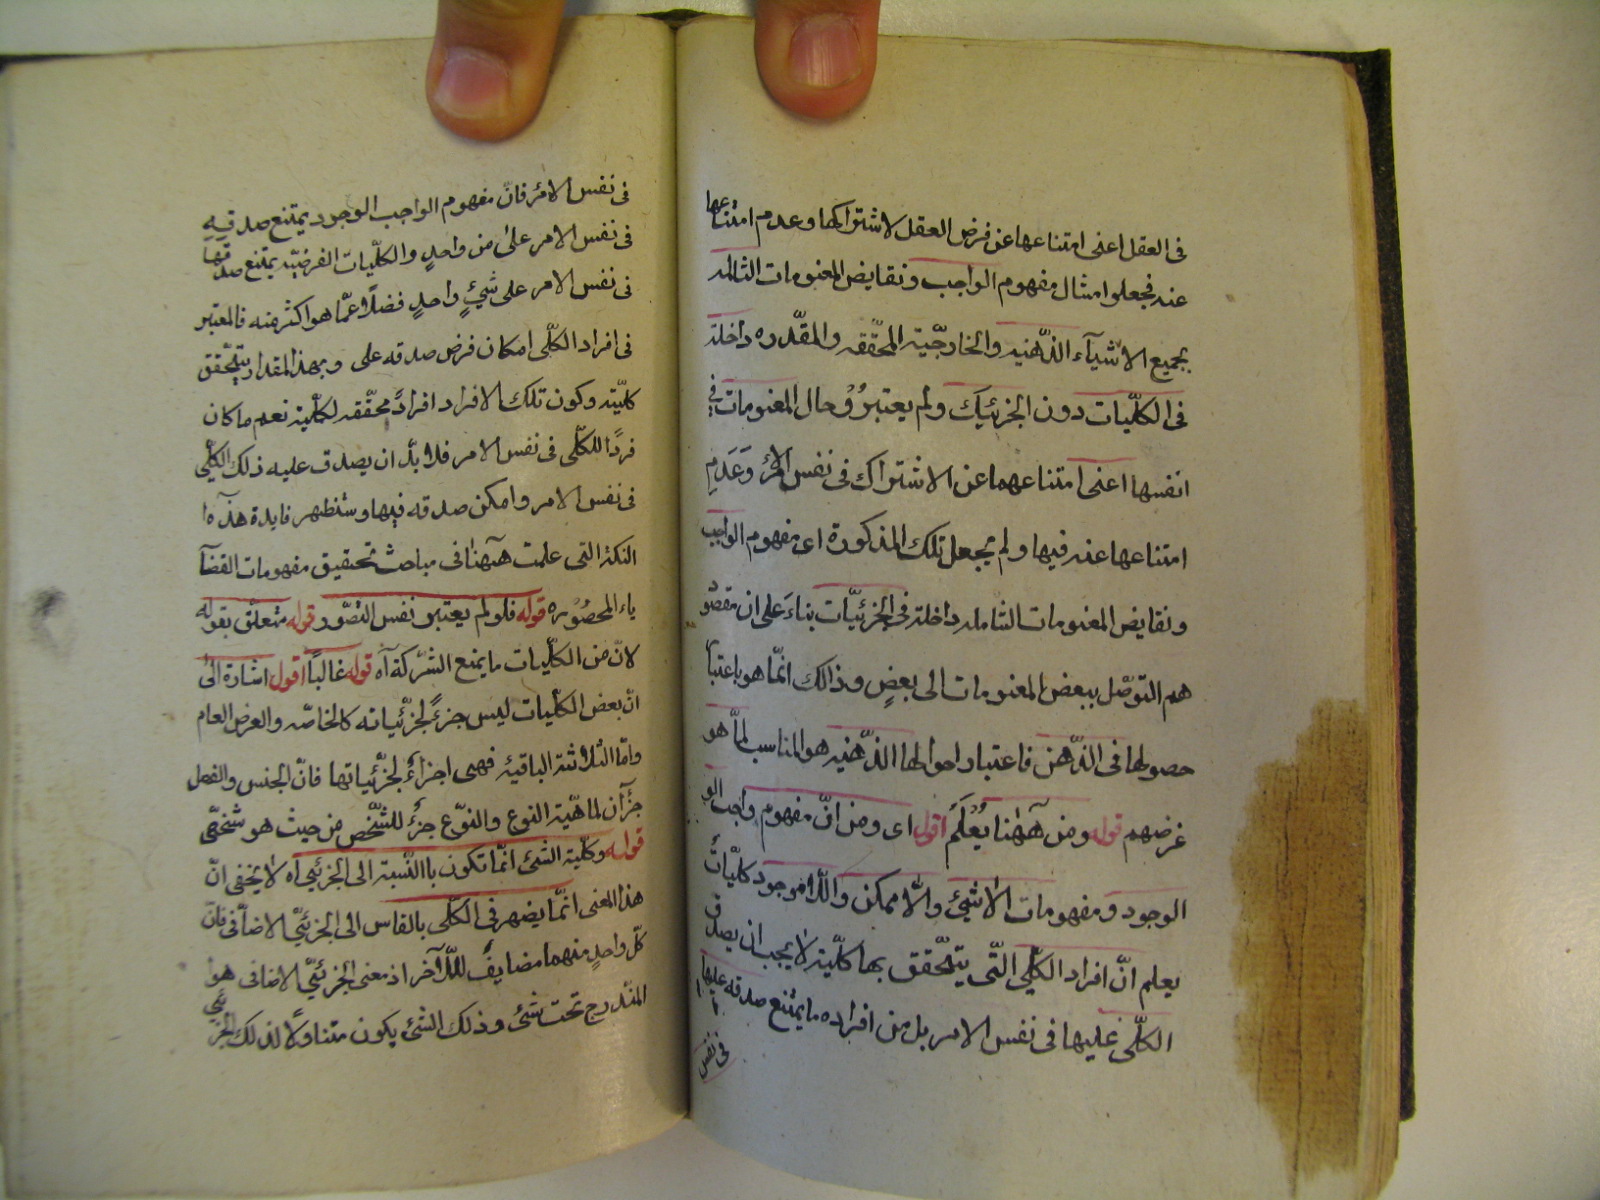 فى العقل اعنى امتناعها عن فرض العقل لاشتراكها وعدم امتناعها
عنه فجعلوا امثال مفهوم الواجب ونقايض المفهومات الشاملة
بجميع الاشيآء الذّهنيه والخارجّية المحقّقه والمقدّره داخلة
فى الكلّيات دون الجزئيات ولم يعتبروُا حال المفهومات فى
انفسها اعنى امتناعهما عن الاشتراك فى نفس الامر وَعَدَمِ
امتناعها عنه فيها ولم تجعل تلك المذكورة اى مفهوم الواجب
ونقايض المفهومات الشامله داخلة فى الجزئيّات بناءَ على ان مقصو
هم التوصّل ببعض المفهومات الى بعضٍ وذالك انمّا هو باعتبا
حصولها فى الذّهن فاعتبار احوالها الذّهنيه هو المناسب لمّا هو
غرضهم قوله ومن ههٰنا يُعْلَمُ اقول اى ومن انّ مفهوم واجب الو
الوجود ومفهومات الاٰشئ والّاٰ ممكن والّلاٰموجود كليّاتُ
يعلم انّ افراد الكلّى التّى يتحّقق بها كلّيته لاٰيجب ان يصدق
الكلّى عليها فى نفس الامر بل من افراده ما يمتنع صدقه عليها
فى نفس
فى نفس الامر فانّ مفهوم الواجب الوجود يمتنع صدقه
فى نفس الامر علىٰ من واحدٍ والكلّيات الفرضيّه يمتنع صدقها
فى نفس الامر على شئٍ واحدٍ فضلًا عمّا هو اكثر منه فالمعتبر
فى افراد الكلّى امكان فرض صدقه على وبهذا المقدار يتحقق
كليّته وكون تلك الافراد افرادً محقّقه لكلّية نعم ما كان
فردًا للكلّى فى نفس الامر فلا بدّ ان يصدق عليه ذلك الكلّى
فى نفس الامر وامكن صدقه فيها وستظهر فايدة هذه
النكة التى علمت هٓهنا فى مباحث تحقيق مفهومات القضآ
ياء المحصُوره قوله فلو لم يعتبر نفس التصّور قوله متعلّق بقوله
لانّ من الكلّيات ما يمنع الشرّكة آه قوله غالباً اقول اشارة الىٰ
انّ بعض الكلّيات ليس جزءً لجزئياته كالخاصّه والعرض العام
وامّا الثلاثة الباقية فهى اجزاءُ لجزئياتها فانّ الجنس والفصل
جزآن لماهيّة النوع والنوّع جزءُ للشخّص من حيث هو شخصّى
قوله وكلّية الشئ انّما تكون باالنّسبة الى الجزئيى آه لاٰيخفى انّ
هذا المعنى انمّا يضهر فى الكلّى بالقاس الى الجزئىّ الاضافى فانّ
كلّ واحدٍ منهما مضايفُ للآخر اذ معنى الجزئىّ الاضافى هو
المندرج تحت شئ وذلك الشئ يكون متناولًا لذلك الجزئى